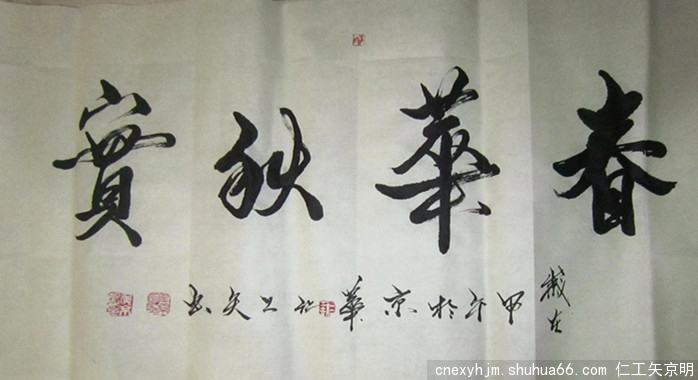 春華秋實
歲在
甲午於京華
cnexyhjm.shuhua66.com 仁工矢京明